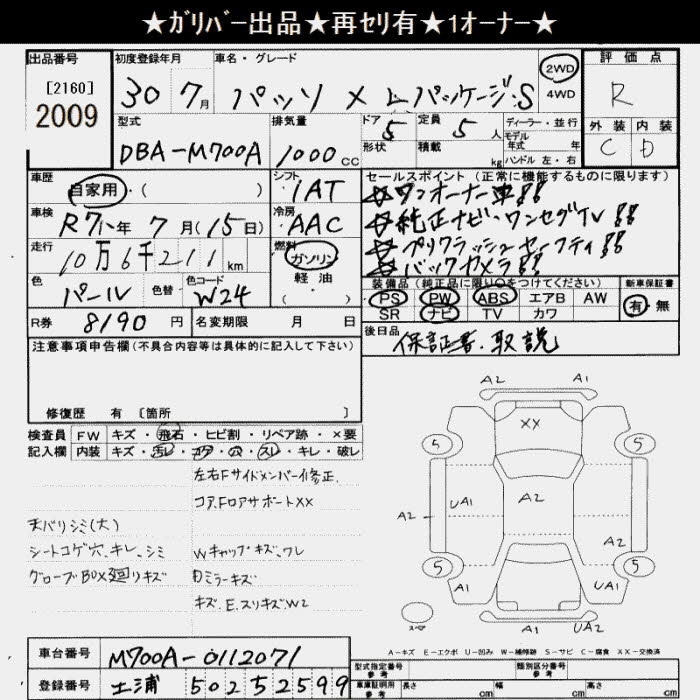 ★ガリバー出品★再セリ有★1オーナー★
出品番号 初度登録年月 車名・グレード 評価点
[2160] 30 7月 パッソ X Lパッケージ・S 2WD R
2009 4WD
型式 排気量 ドア 5 定員 5人 ディーラー・並行 外装 内装
モデル年式 年
DBA-M700A 1000CC 形状 積載 kg ハンドル 左・右 C D
車歴 シフト セールスポイント (正常に機能するものに限ります)
自家用・( ) IAT ☆ワンオーナー車!!
車検 冷房 ☆純正ナビ・ワンセグTV!!
R7年 7月(15日) AAC
走行 燃料 ☆プリクラッシュセーフティ!!
10万6千211km ガソリン ☆バックカメラ!!
色 色替 色コード 軽油 装備品 (純正品に限り○をつけてください) 新車保証書
パール W24 ( ) PS PW ABS エアB AW 有・無
R券 8190円 名変期限 月 日 SR ナビ TV カワ
注意事項申告欄(不具合内容等は具体的に記入して下さい) 後日品 保証書、取説
修復歴 有 〔箇所 〕
検査員 FW キズ・飛石・ヒビ割・リペア跡・×要
記入欄 内装 キズ・汚レ・コゲ・穴・スレ・キレ・破レ
左右Fサイドメンバー修正、
コア、FロアサポートXX
天バリシミ(大)
シートコゲ穴、キレ、シミ Wキャップキズ、ワレ
グローブBOX廻リキズ Dミラーキズ
キズ、E、スリキズW2
A2 A1
XX
5 5
UA1 A2
A2 A2
5 5
A1 UA1
スペアー A1 UA2
A-キズ E-エクボ U-凹み W-補修跡 S-サビ C-腐食 XX-交換済
車台番号 M700A-0112071
型式指定番号 参考 類別区分番号 参考
登録番号 土浦 502 52599
車庫証明用 参考 長さ cm 幅 cm 高さ cm